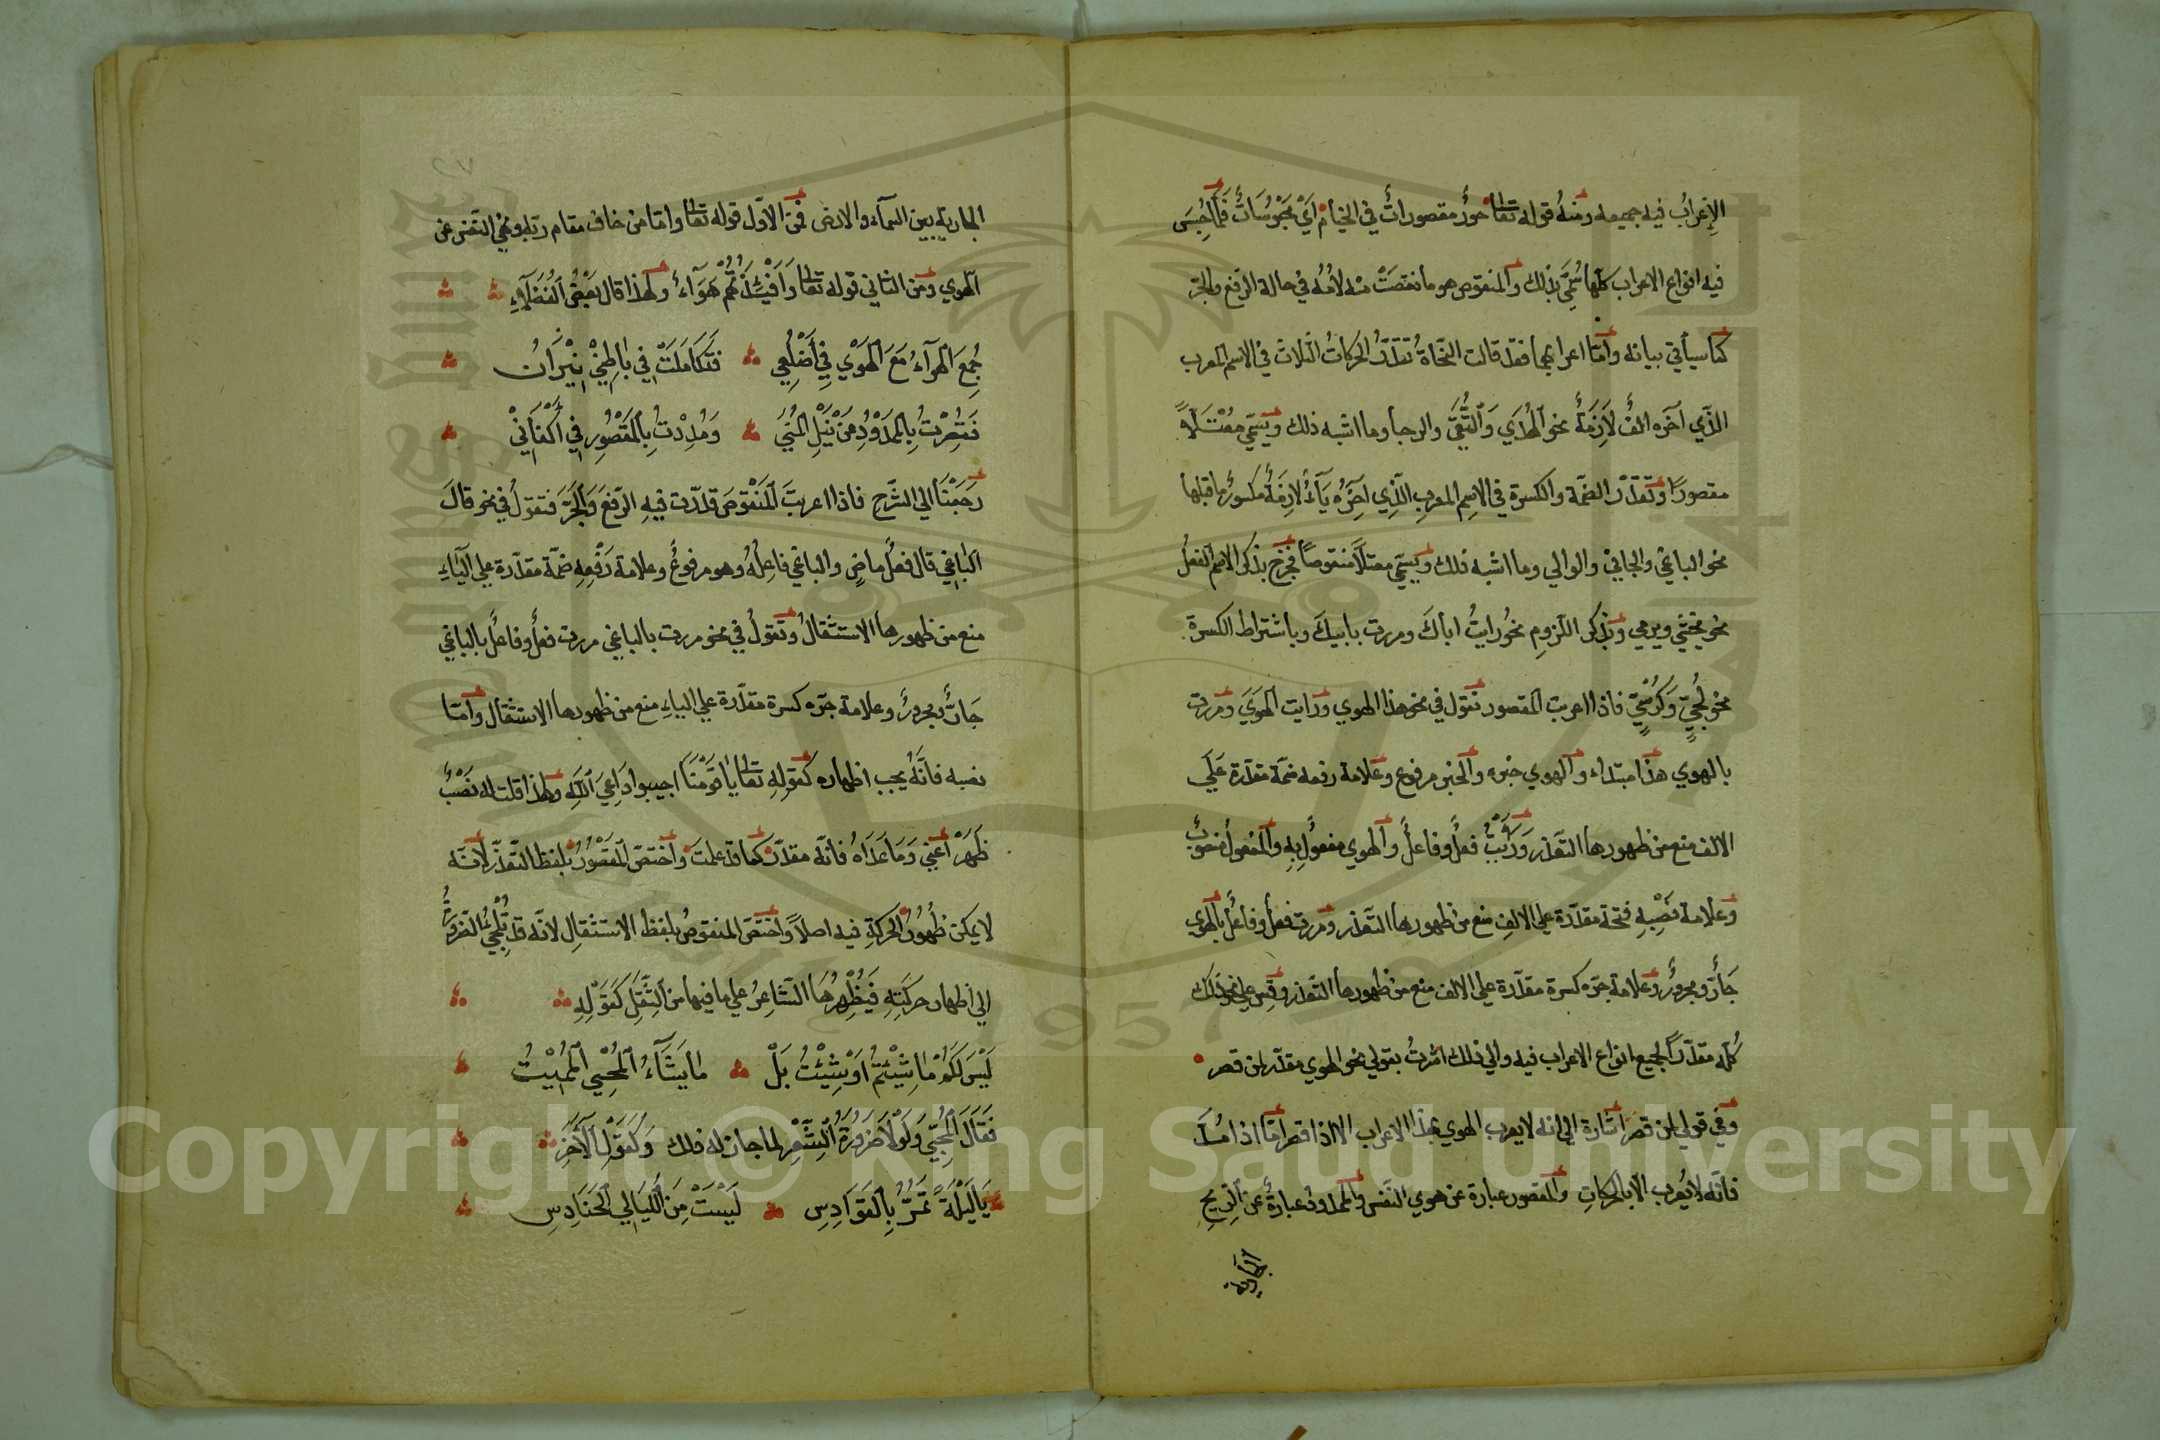 الإعرابُ فيه جميعه ومنهُ قوله تعالى حورٌ مقصوراتٌ في الخيام أيْ محبوُسَاتٌ فلمّا حُبِسَ
فيه انواع الاعراب كلّها سُمّيَ بذلك والمنقوص هو ما نقصَتْ منه لامُهُ في حالة الرّفع والجرّ
كما سيأتي بيانه وامّا اعرابهما فقد قالت النّحاةُ تُقَدَّرُ الحركاتُ الثلاث في الاسم المعرب
الذّي آخره الفٌ لاَزِمَةٌ نحو الهُدَي وَالتُّقَى والرحا وما اشبه ذلك ويسمّي مُعْتَلاًّ
مقصورًا وتُقَدَّرُ الضمّة والكسرة في الاسِم المعربِ الذّي آخِرُه يَآءٌ لازِمَةٌ مكسورٌ ما قبلها
نحو الباغي والجاني والوالي وما اشبه ذلك ويسمّي معتلاًّ منقوصًا فخرج بذكر الاسم الفعلُ
نحو يخشي ويرمي وبذكر اللّزومِ نحوُ رايتُ اباكَ ومررت بابيكَ وباشتراط الكسرة
نحو لُجّيٍّ وَكُرْسِيٍّ فاذا اعربت المقصور تقول في نحو هذا الهوي ورايت الهَوَيَ ومررت
بالهوي هذا مبتداء والهوي خبره والخبر مرفوع وعلامة رفعه ضمّة مقدّرة عَلَي
الالف منع من ظهورها التعذر وَرَايْتُ فعلٌ وفاعلٌ والهوي مفعولٌ بِهِ والمفعول منصوبٌ
وعلامة نَصْبِهِ فتحة مقدّرة علي الالفِ منع من ظهورها التعذر ومررت فعل وفاعل بالهوي
جَارٌّ ومجرورٌ وعلامة جرّه كسرة مقدّرة علي الالف منع من ظهورها التعذر وقِس علي نحو ذلك
كُلّه مقدّرًا لجميع انواع الاعراب فيه والي ذلك اشرتُ بقولي نحو الهوي مقدّر لمن قصر
وفي قولي لمن قصر اشارة الي انه لا يعرب الهوي بهذا الاعراب الا اذا قصر امّا اذا مُدَّ
فانّه لا يُعرب الاّ بالحركاتِ والمقصور عبارة عن هوي النّفس والممدودُ عبارةٌ عن الرّيحِ
الجارية
٢٧
الجارية بين السمآء والارض فمن الاوّل قوله تعالى وامّا من خاف مقام ربّه ونهي النّفس عن
الهوي ومن الثاني قوله تعالى وَاَفْئِدَتُهُمْ هَوَآءٌ ولهذا قال بعضُ الفُضَلآءِ
جُمِعَ الهَوَآءُ مَعَ الهَوْي فِي أَضْلُعِي فَتَكَامَلَتْ فِي بَاطِنِيْ نِيْرَانُ
فَقَصُرْتُ بِالمَمْدُوْدِ مَنْ نَيْلِ المُنَي وَمُدِدْتُ بِالمَقْصُورِ فِي أكْفَانِيْ
رَجَعْنَا الي الشّرحِ فاذا اعربتَ المَنْقُوصَ قدّرت فيهِ الرّفعَ وَالجَرَّ فتقولُ في نحو قالَ
الباغي قال فعلٌ ماضٍ والباغي فاعِلُهُ وهو مرفوعٌ وعلامة رَفْعِهِ ضمّة مقدّرة علي الياءِ
منع من ظهورها الاستثقالُ وتقولُ في نحو مررت بالباغي مررت فعلٌ وفاعلٌ بالباغي
جَارٌّ ومجرورٌ وعلامة جرّه كسرة مقدّرة علي الياءِ منع من ظهورها الاستثقال وامّا
نصبه فانّهُ يجب اظهاره كقولِهِ تعالى يا قَوْمَنَا اجيبوا دَاعِيَ اللهِ ولهذا قلت له نَصْبٌ
ظَهَرْ أعني وَمَا عَدَاهُ فانّه مقدّر كما قد علمتَ واختصّ المَقْصُورُ بلفظ التعذّر لأنّه
لا يمكن ظُهُورُ الحركةِ فيه اصلاً واختصّ المنقوصُ بلفظ الاستثقالِ لانّه قد تُلْجِئُ الضّرورةُ
الي اظهار حركَتِهِ فَيُظْهِرُهَا الشّاعِرُ علي ما فيها من الثّقلِ كَقَوْلِهِ
لَيْسَ لَكُمْ مَا شِيْئتُمْ اوْ شِيْئتُ بَلْ مَا يَشَآءُ المُحْيِي المُمِيْتُ
فَقَالَ المُحْيِيُ وَلَوْلاَ ضَرُورَةُ الشِّعْرِ لما جاز له ذلك وَكَقَوْلِ الآخَرِ
يَا لَيْلَةً تَمُرُّ بِالقَوَادِسِ لَيْسَتْ مِنَ اللّيَالِي الحَنَادِسِ
Copyright © King Saud University
1957